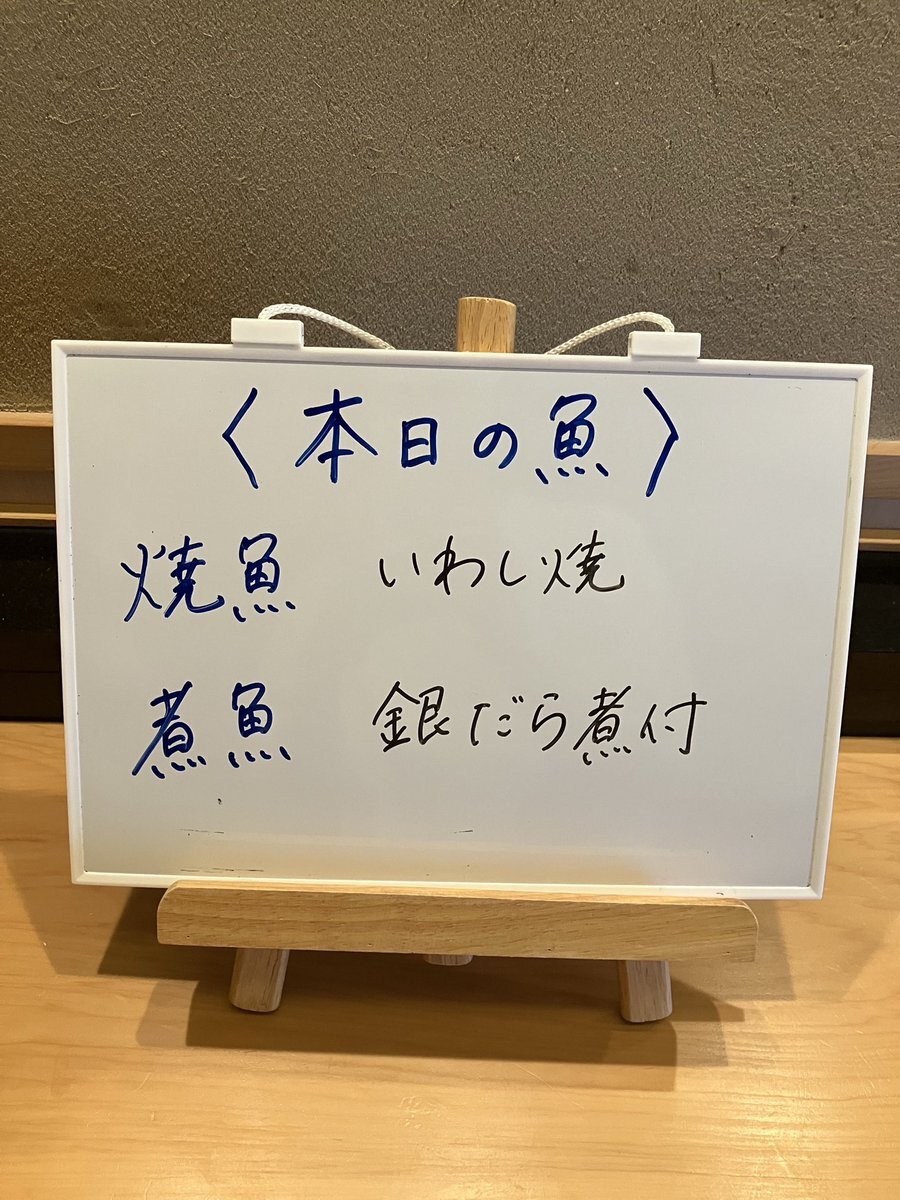 〈本日の魚〉
焼魚 いわし焼
煮魚 銀だら煮付